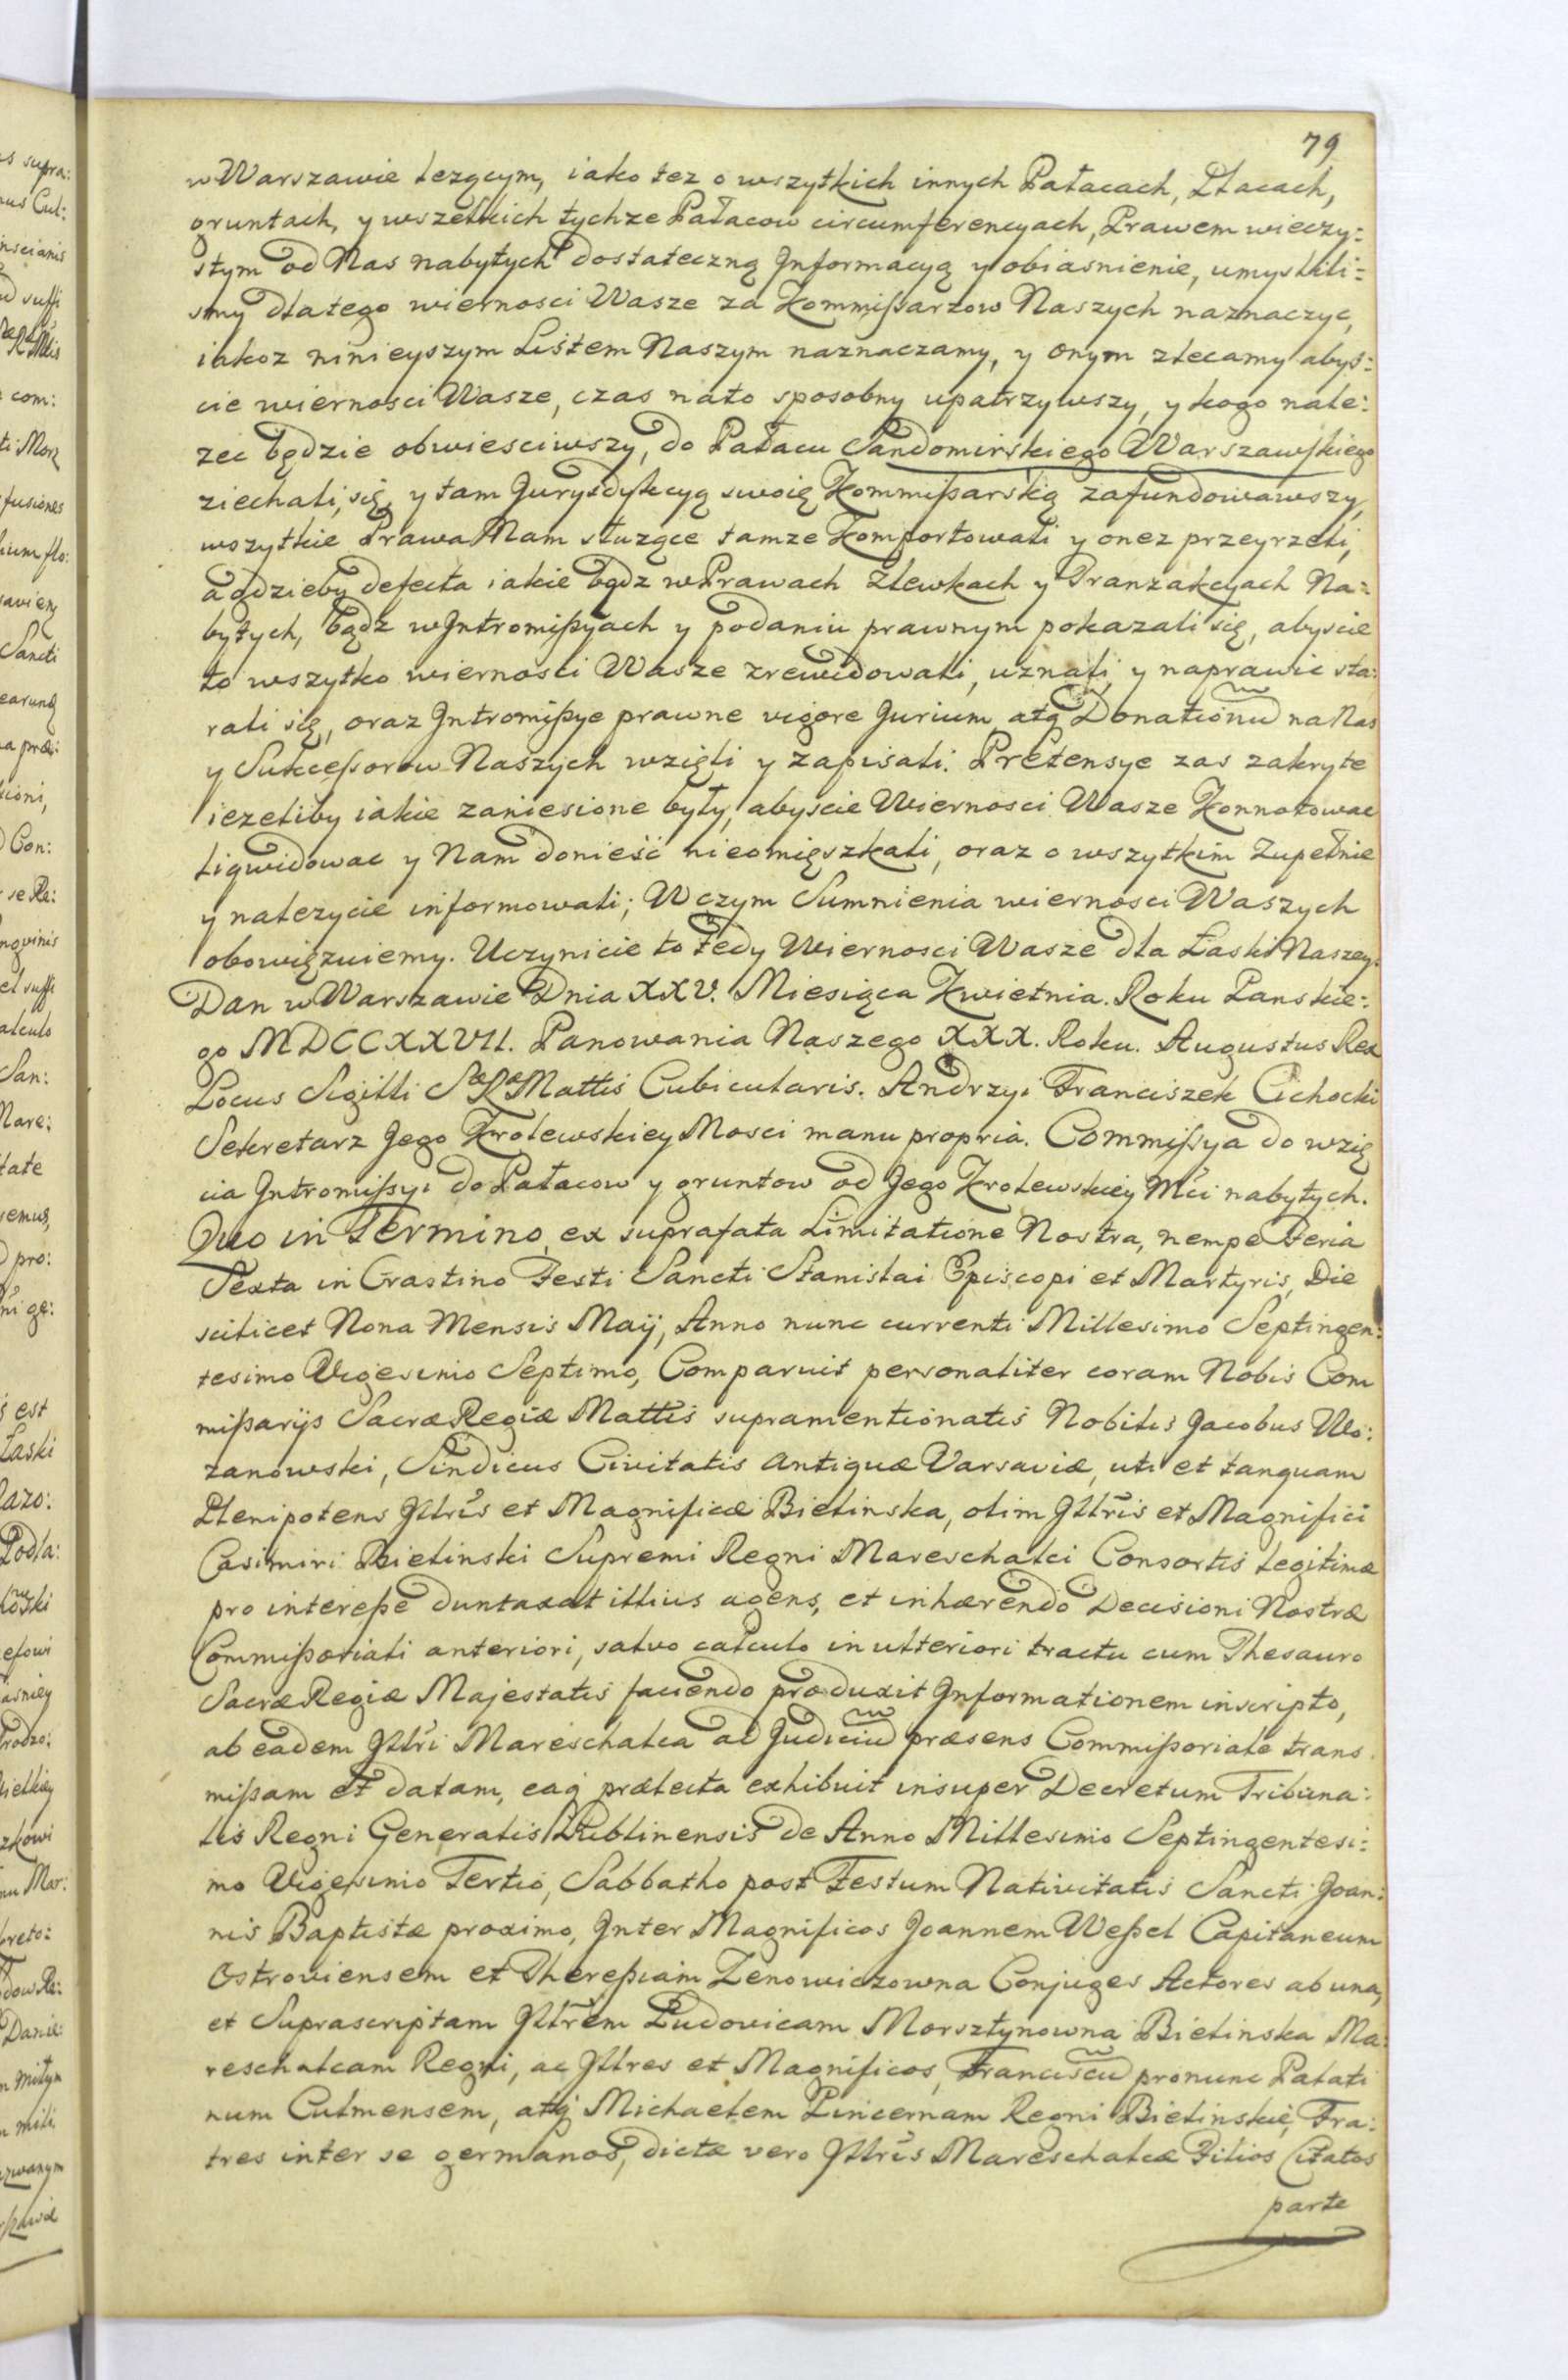 79
w Warszawie lezącym, iako tez o wszytkich innych Pałacach, Placach,
gruntach, y wszelkich tychze Pałacow circumferencyach, Prawem wieczy:
stym od Nas nabytych dostateczną Informacyą y obiasnienie, umyslili:
smy dlatego wiernosci Wasze za Kommißarzow Naszych naznaczyc,
iakoz ninieyszym Listem Naszym naznaczamy, y onym zlecamy abys:
cie wiernosci Wasze, czas nato sposobny upatrzywszy, y kogo nale:
zec będzie obwiesciwszy, do Pałacu Sandomirskiego Warszawskiego
ziechali się, y tam Jurysdykcyą swoię Kommißarską zafundowawszy,
wszytkie Prawa Nam słuzące tamze Komportowali y onez przeyrzeli,
a gdzieby defecta iakie bądz w Prawach Zlewkach y Tranzakcyach Na:
bytych, bądz w Intromißyach y podaniu prawnym pokazali się, abyscie
to wszytko wiernosci Wasze zrewidowali, uznali, y naprawic sta:
rali się, oraz Intromißye prawne vigore Jurium atq Donationu na Nas
y Sukceßorow Naszych wzięli y zapisali. Pretensye zas zakryte
iezeliby iakie zaniesione były, abyscie Wiernosci Wasze Konnotowac
liqwidowac y Nam donieść nieomięszkali, oraz o wszytkim Zupełnie
y nalezycie informowali; W czym Sumnienia wiernosci Waszych
obowięzuiemy. Uczynicie to tedy Wiernosci Wasze dla Łaski Naszey.
Dan w Warszawie Dnia XXV. Miesiąca Kwietnia. Roku Panskie:
go MDCCXXVII. Panowania Naszego XXX. Roku. Augustus Rex
Locus Sigilli Sæ Ræ Mattis Cubicularis. Andrzyi Franciszek Cichocki
Sekretarz Jego Krolewskiey Mosci manu propria. Commißya do wzię
cia Intromißyi do Pałacow y gruntow od Jego Krolewskiey Mci nabytych.
Quo in Termino, ex suprafata Limitatione Nostra, nempe Feria
Sexta in Crastino Festi Sancti Stanislai Episcopi et Martyris, Die
scilicet Nona Mensis Maij, Anno nunc currenti Millesimo Septingen:
tesimo Vigesimo Septimo, Comparuit personaliter coram Nobis Com
mißarijs Sacræ Regiæ Mattis supramentionatis Nobilis Jacobus Wo:
zanowski, Sindicus Civitatis Antiquæ Varsaviæ, uti et tanquam
Plenipotens Illris et Magnificæ Bielinska, olim Illris et Magnifici
Casimiri Bielinski Supremi Regni Mareschalci Consortis legitimæ
pro intereße duntaxat illius agens, et inhærendo Decisioni Nostræ
Commißoriali anteriori, salvo calculo in ulteriori tractu cum Thesauro
Sacræ Regiæ Majestatis faciendo produxit Informationem inscripto,
ab eadem Illri Mareschalca ad Judiciu præsens Commißoriale trans
mißam et datam, eaq prælecta exhibuit insuper Decretum Tribuna:
lis Regni Generalis Lublinensis de Anno Millesimo Septingentesi:
mo Vigesimo Tertio, Sabbatho post Festum Nativitatis Sancti Joan:
nis Baptistæ proximo, Inter Magnificos Joannem Weßel Capitaneum
Ostroviensem et Thereßiam Zenowiczowna Conjuges Actores ab una,
et Suprascriptam Illrem Ludovicam Morsztynowna Bielinska Ma:
reschalcam Regni, ac Illres et Magnificos, Franciscu pronunc Palati
num Culmensem, atq Michaelem Pincernam Regni Bielinskie, Fra:
tres inter se germanos, dictæ vero Illris Mareschalcæ Filios Citatos
parte